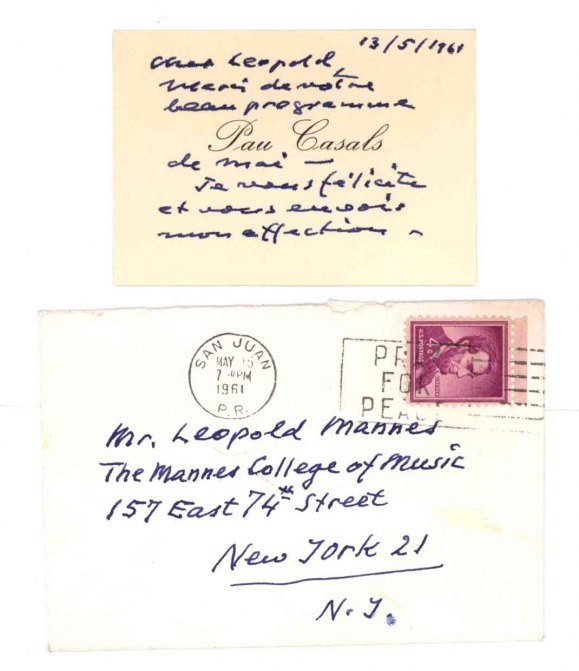 13/5/1961
Cher Leopold,
Merci de votre
beau programme
Pau Casals
de mai —
Je vous félicite
et vous envois
mon affection -
SAN JUAN
MAY
7 PM
1961
P.R.
PRAY
FOR
PEACE
U.S. POSTAGE
4¢
Mr. Leopold Mannes
The Mannes College of Music
157 East 74th Street
New York 21
N. Y.